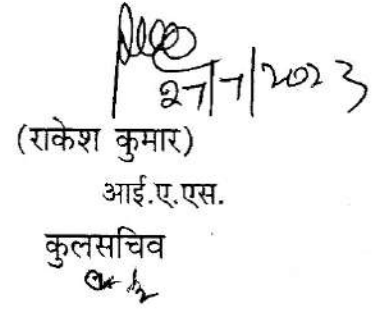 27/7/2023
(राकेश कुमार)
आई.ए.एस.
कुलसचिव